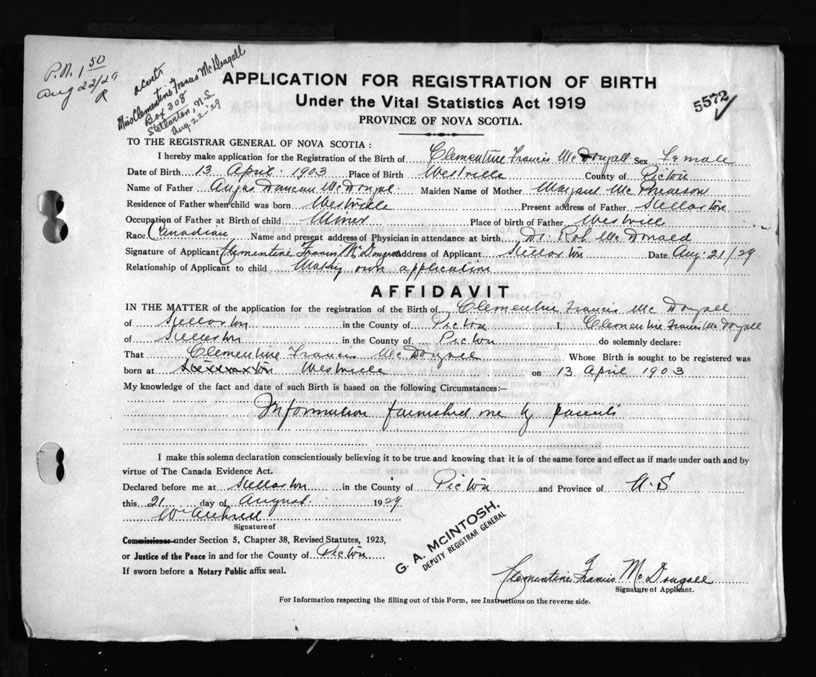 P.N. 1 50
Aug 22/29
R
Miss Clementine Francis McDougall
Box 308
Stellarton, N.S
Aug-22-'29
5572
APPLICATION FOR REGISTRATION OF BIRTH
Under the Vital Statistics Act 1919
PROVINCE OF NOVA SCOTIA.
TO THE REGISTRAR GENERAL OF NOVA SCOTIA :
I hereby make application for the Registration of the Birth of Clementine Francis McDougall Sex Female
Date of Birth 13 April 1903 Place of Birth Westville County of Pictou
Name of Father Angus Duncan McDougal Maiden Name of Mother Margaret McPherson
Residence of Father when child was born Westville Present address of Father Stellarton
Occupation of Father at Birth of child Miner Place of birth of Father Westville
Race Canadian Name and present address of Physician in attendance at birth Dr. Rob McDonald
Signature of Applicant Clementine Francis McDougall Address of Applicant Stellarton Date Aug. 21/29
Relationship of Applicant to child Making own application
AFFIDAVIT
IN THE MATTER of the application for the registration of the Birth of Clementine Francis McDougall
of Stellarton in the County of Pictou I, Clementine Francis McDougall
of Stellarton in the County of Pictou do solemnly declare:
That Clementine Francis McDougall Whose Birth is sought to be registered was
born at Westville on 13 April 1903
My knowledge of the fact and date of such Birth is based on the following Circumstances:—
Information furnished me by parents
I make this solemn declaration conscientiously believing it to be true and knowing that it is of the same force and effect as if made under oath and by
virtue of The Canada Evidence Act.
Declared before me at Stellarton in the County of Pictou and Province of N.S
this 21 day of August 1929
Signature of
Commissioner under Section 5, Chapter 38, Revised Statutes, 1923,
or Justice of the Peace in and for the County of Pictou
If sworn before a Notary Public affix seal.
G. A. McINTOSH,
DEPUTY REGISTRAR GENERAL
Clementine Francis McDougall
Signature of Applicant.
For Information respecting the filling out of this Form, see Instructions on the reverse side.